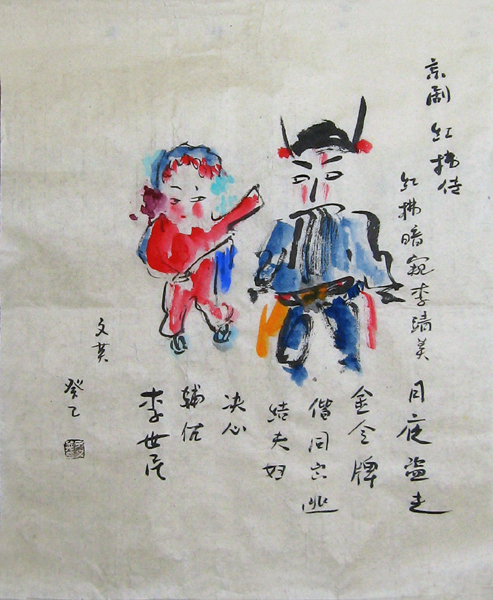 京剧 红拂传
红拂暗窥李靖美
月夜盗走
金令牌
偕同出逃
结夫妇
决心
辅佐
李世民
文英
癸巳